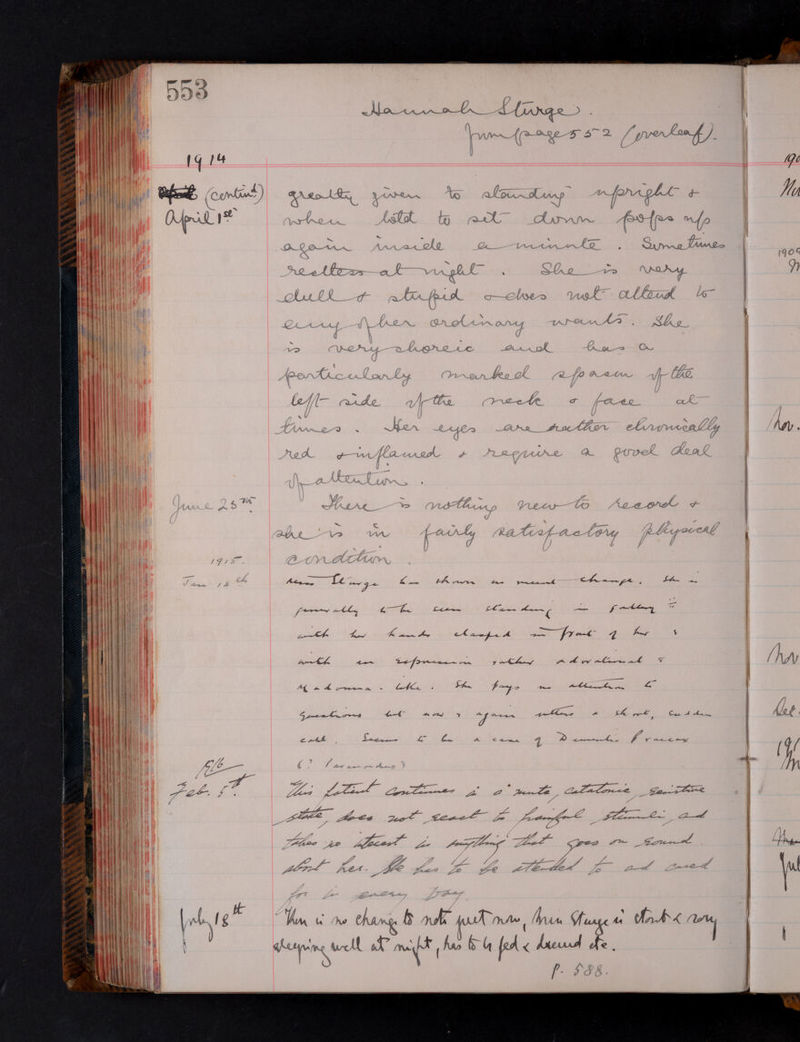 553
Hannah Sturge.
from page 552 (overleaf).
1914
(contind) greatly given to standing upright &
April 1st when told to sit down pops up
again inside a minute. Sometimes
restless at night. She is very
dull & stupid & does not attend to
any of her ordinary wants. She
is very choreic and has a
particularly marked spasm of the
left side of the neck & face at
times. Her eyes are rather chronically
red & inflamed & require a good deal
of attention.
June 25th There is nothing new to record &
she is in fairly satisfactory physical
1915. condition.
Jan 18th Miss Sturge has shown no change. She is
generally to be seen standing in gallery
with her hands clasped in front of her &
with an expression rather adorational &
Madonna-like. She pays no attention to
questions but now & again utters a short, sudden
call. Seems to be a case of Dementia Praecox
1916
Feb. 5th. This patient continues in a mute, catatonic, resistive
state, does not react to painful stimuli, and
takes no interest in anything that goes on round
about her. She has to be attended to and cared
for in every way.
July 18th There is no change to note just now, Miss Sturge is stout & rosy
sleeping well at night, has to be fed & dressed etc.
p. 588.
190
1909
Nov.
Nov
Dec.